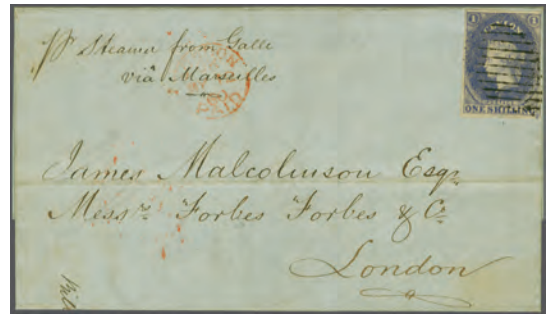 pr Steamer from Galle
via Marseilles
PAID
ONE SHILLING
James Malcolmson Esqr
Messrs Forbes Forbes & Co
London